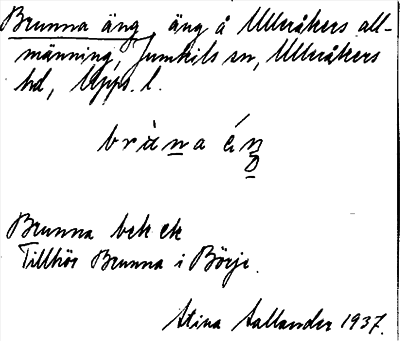 Brunna äng, äng å Ulleråkers all-
männing, Jumkils sn, Ulleråkers
hd, Upps. l.
Brunna bek ek
Tillhör Brunna i Börje.
Stina Sallander 1937.